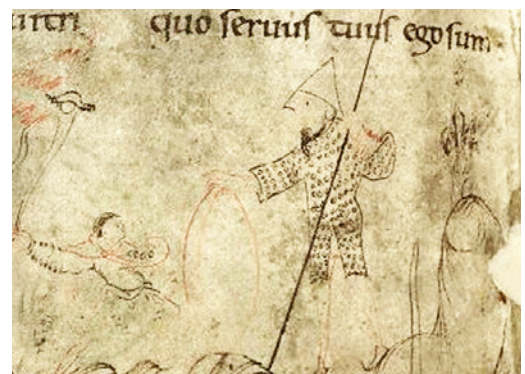 quo seruus tuus ego sum